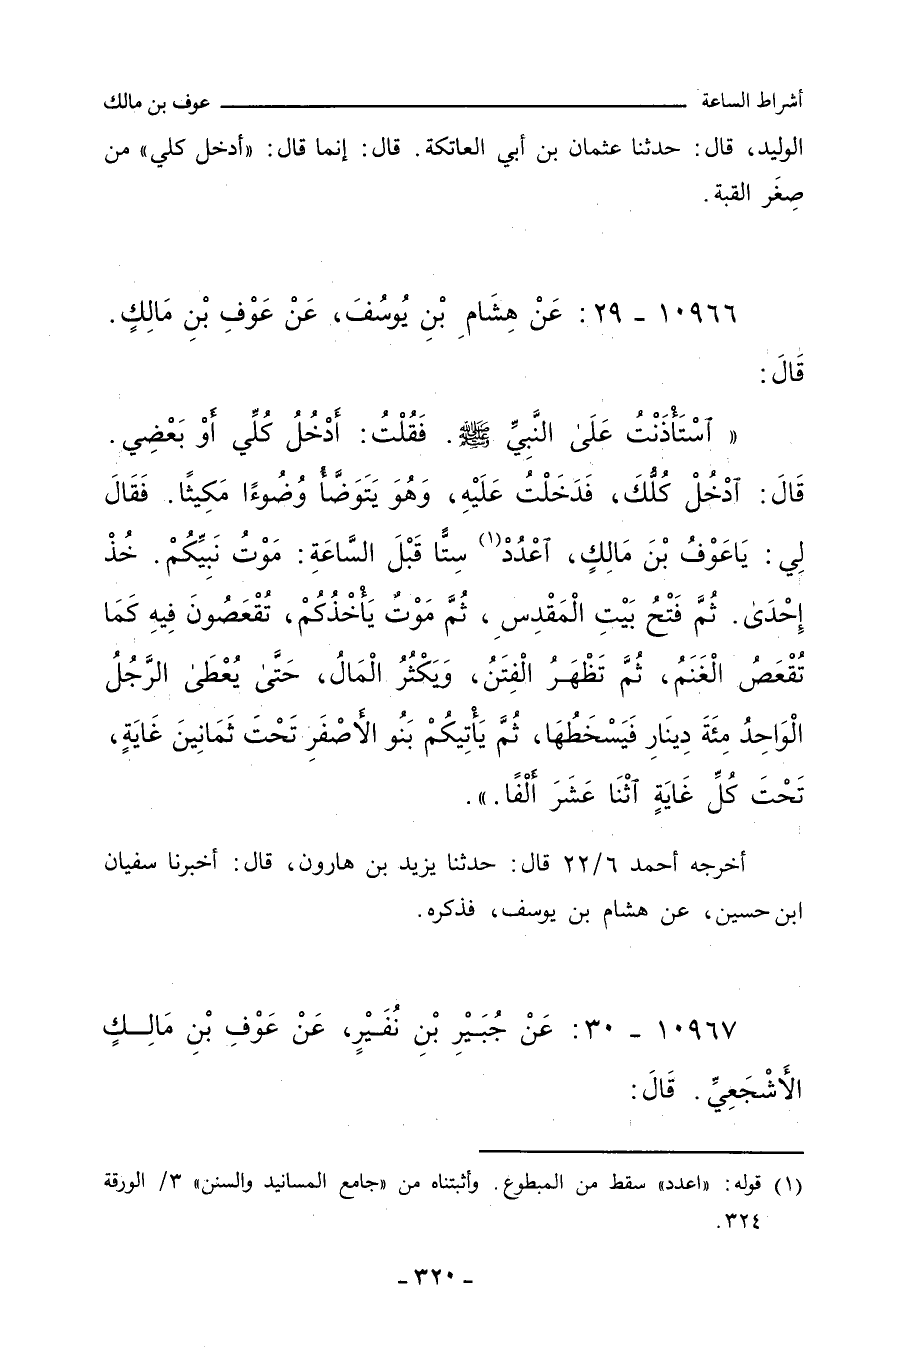 أشراط الساعة ـــــــــــــــــــ عوف بن مالك
الوليد، قال: حدثنا عثمان بن أبي العاتكة. قال: إنما قال: «أدخل كلي» من
صِغَر القبة.
١٠٩٦٦ - ٢٩: عَنْ هِشَامِ بْنِ يُوسُفَ، عَنْ عَوْفِ بْنِ مَالِكٍ.
قَالَ:
« ٱسْتَأْذَنْتُ عَلَىٰ النَّبِيِّ ﷺ. فَقُلْتُ: أَدْخُلُ كُلِّي أَوْ بَعْضِي.
قَالَ: ٱدْخُلْ كُلُّكَ، فَدَخَلْتُ عَلَيْهِ، وَهُوَ يَتَوَضَّأُ وُضُوءًا مَكِيثًا. فَقَالَ
لِي: يَاعَوْفُ بْنَ مَالِكٍ، ٱعْدُدْ(١) سِتًّا قَبْلَ السَّاعَةِ: مَوْتُ نَبِيِّكُمْ. خُذْ
إِحْدَىٰ. ثُمَّ فَتْحُ بَيْتِ الْمَقْدِسِ، ثُمَّ مَوْتٌ يَأْخُذُكُمْ، تُقْعَصُونَ فِيهِ كَمَا
تُقْعَصُ الْغَنَمُ، ثُمَّ تَظْهَرُ الْفِتَنُ، وَيَكْثُرُ الْمَالُ، حَتَّىٰ يُعْطَىٰ الرَّجُلُ
الْوَاحِدُ مِئَةَ دِينَارٍ فَيَسْخَطُهَا، ثُمَّ يَأْتِيكُمْ بَنُو الأَصْفَرِ تَحْتَ ثَمَانِينَ غَايَةٍ،
تَحْتَ كُلِّ غَايَةٍ ٱثْنَا عَشَرَ أَلْفًا.».
أخرجه أحمد ٢٢/٦ قال: حدثنا يزيد بن هارون، قال: أخبرنا سفيان
ابن حسين، عن هشام بن يوسف، فذكره.
١٠٩٦٧ - ٣٠: عَنْ جُبَيْرِ بْنِ نُفَيْرٍ، عَنْ عَوْفِ بْنِ مَالِـكٍ
الأَشْجَعِيِّ. قَالَ:
(١) قوله: «اعدد» سقط من المطبوع. وأثبتناه من «جامع المسانيد والسنن» ٣/ الورقة
٣٢٤.
- ٣٢٠ -